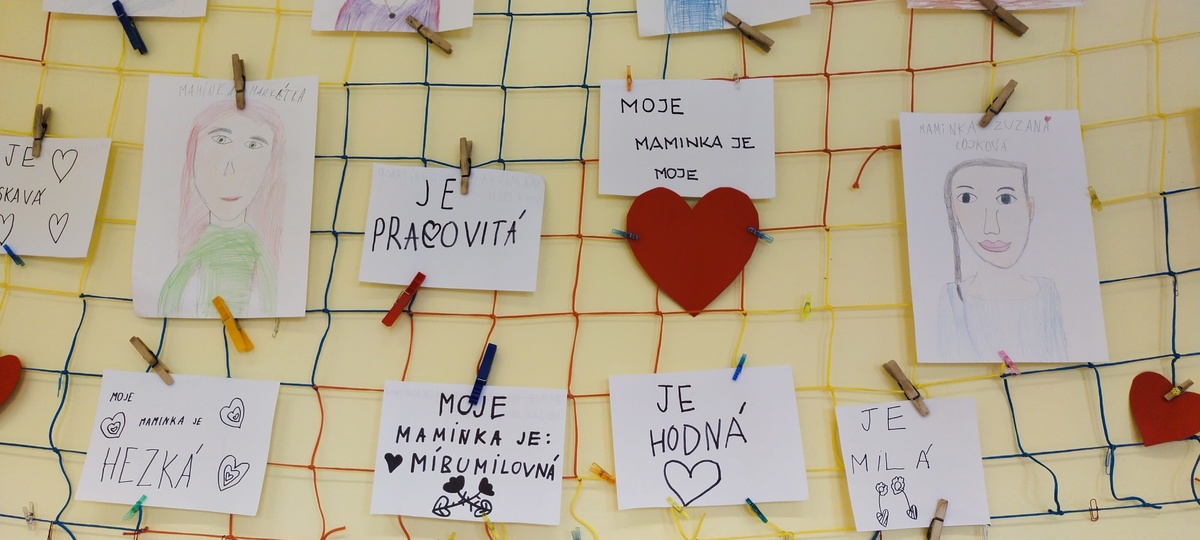 JE
SKAVÁ
MAMINKA MARKÉTKA
JE
PRACOVITÁ
MOJE
MAMINKA JE
MOJE
MAMINKA ZUZANA
LOJKOVÁ
MOJE
MAMINKA JE
HEZKÁ
MOJE
MAMINKA JE:
MÍBUMILOVNÁ
JE
HODNÁ
JE
MILÁ